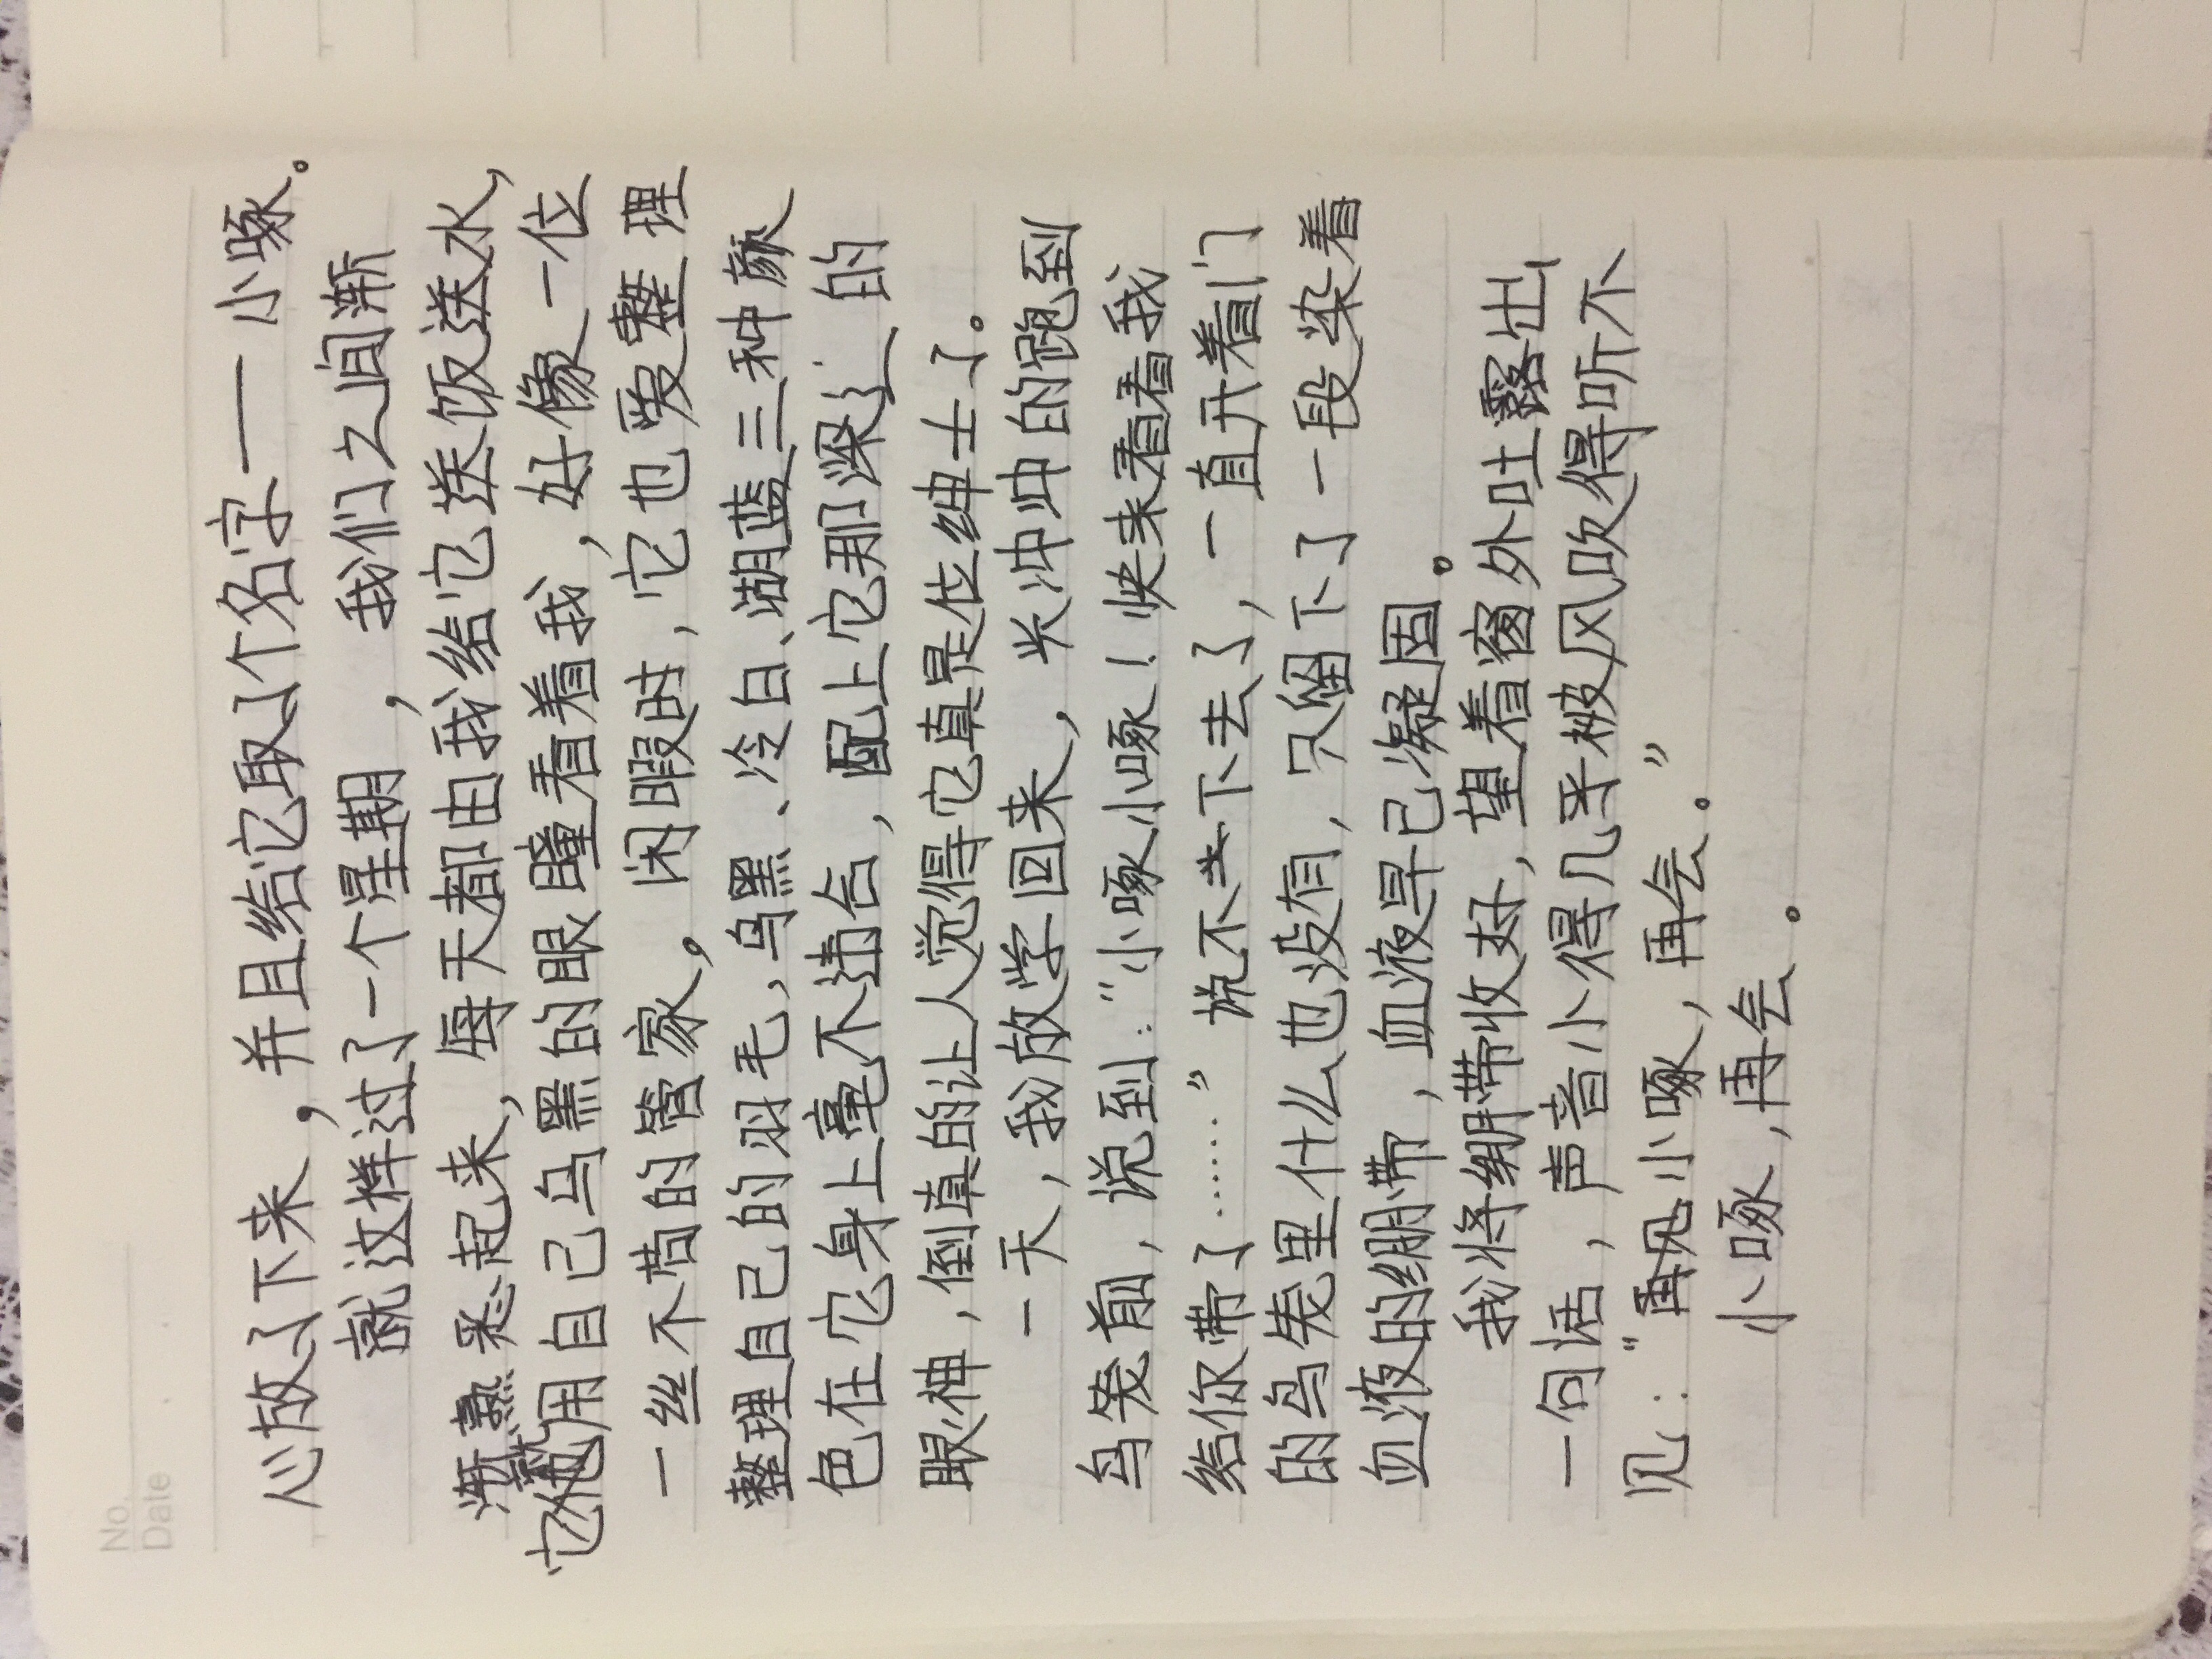 No.
Date
心放了下来，并且给它取了个名字——小啄。
就这样过了一个星期，我们之间渐
渐熟悉起来，每天都由我给它送饭送水，
它用自己乌黑的眼瞳看着我，好像一位
一丝不苟的管家。闲暇时，它也爱整理
整理自己的羽毛，乌黑、冷白、湖蓝三种颜
色在它身上毫不违合，配上它那深辶的
眼神，倒真的让人觉得它真是位绅士了。
一天，我放学回来，兴冲冲的跑到
鸟笼前，说到：“小啄小啄！快来看看我
给你带了……”说不下去了，一直开着门
的鸟笼里什么也没有，只留下了一段染着
血液的绷带，血液早已凝固。
我将绷带收好，望着窗外吐露出
一句话，声音小得几乎被风吹得听不
见：“再见小啄，再会。”
小啄，再会。